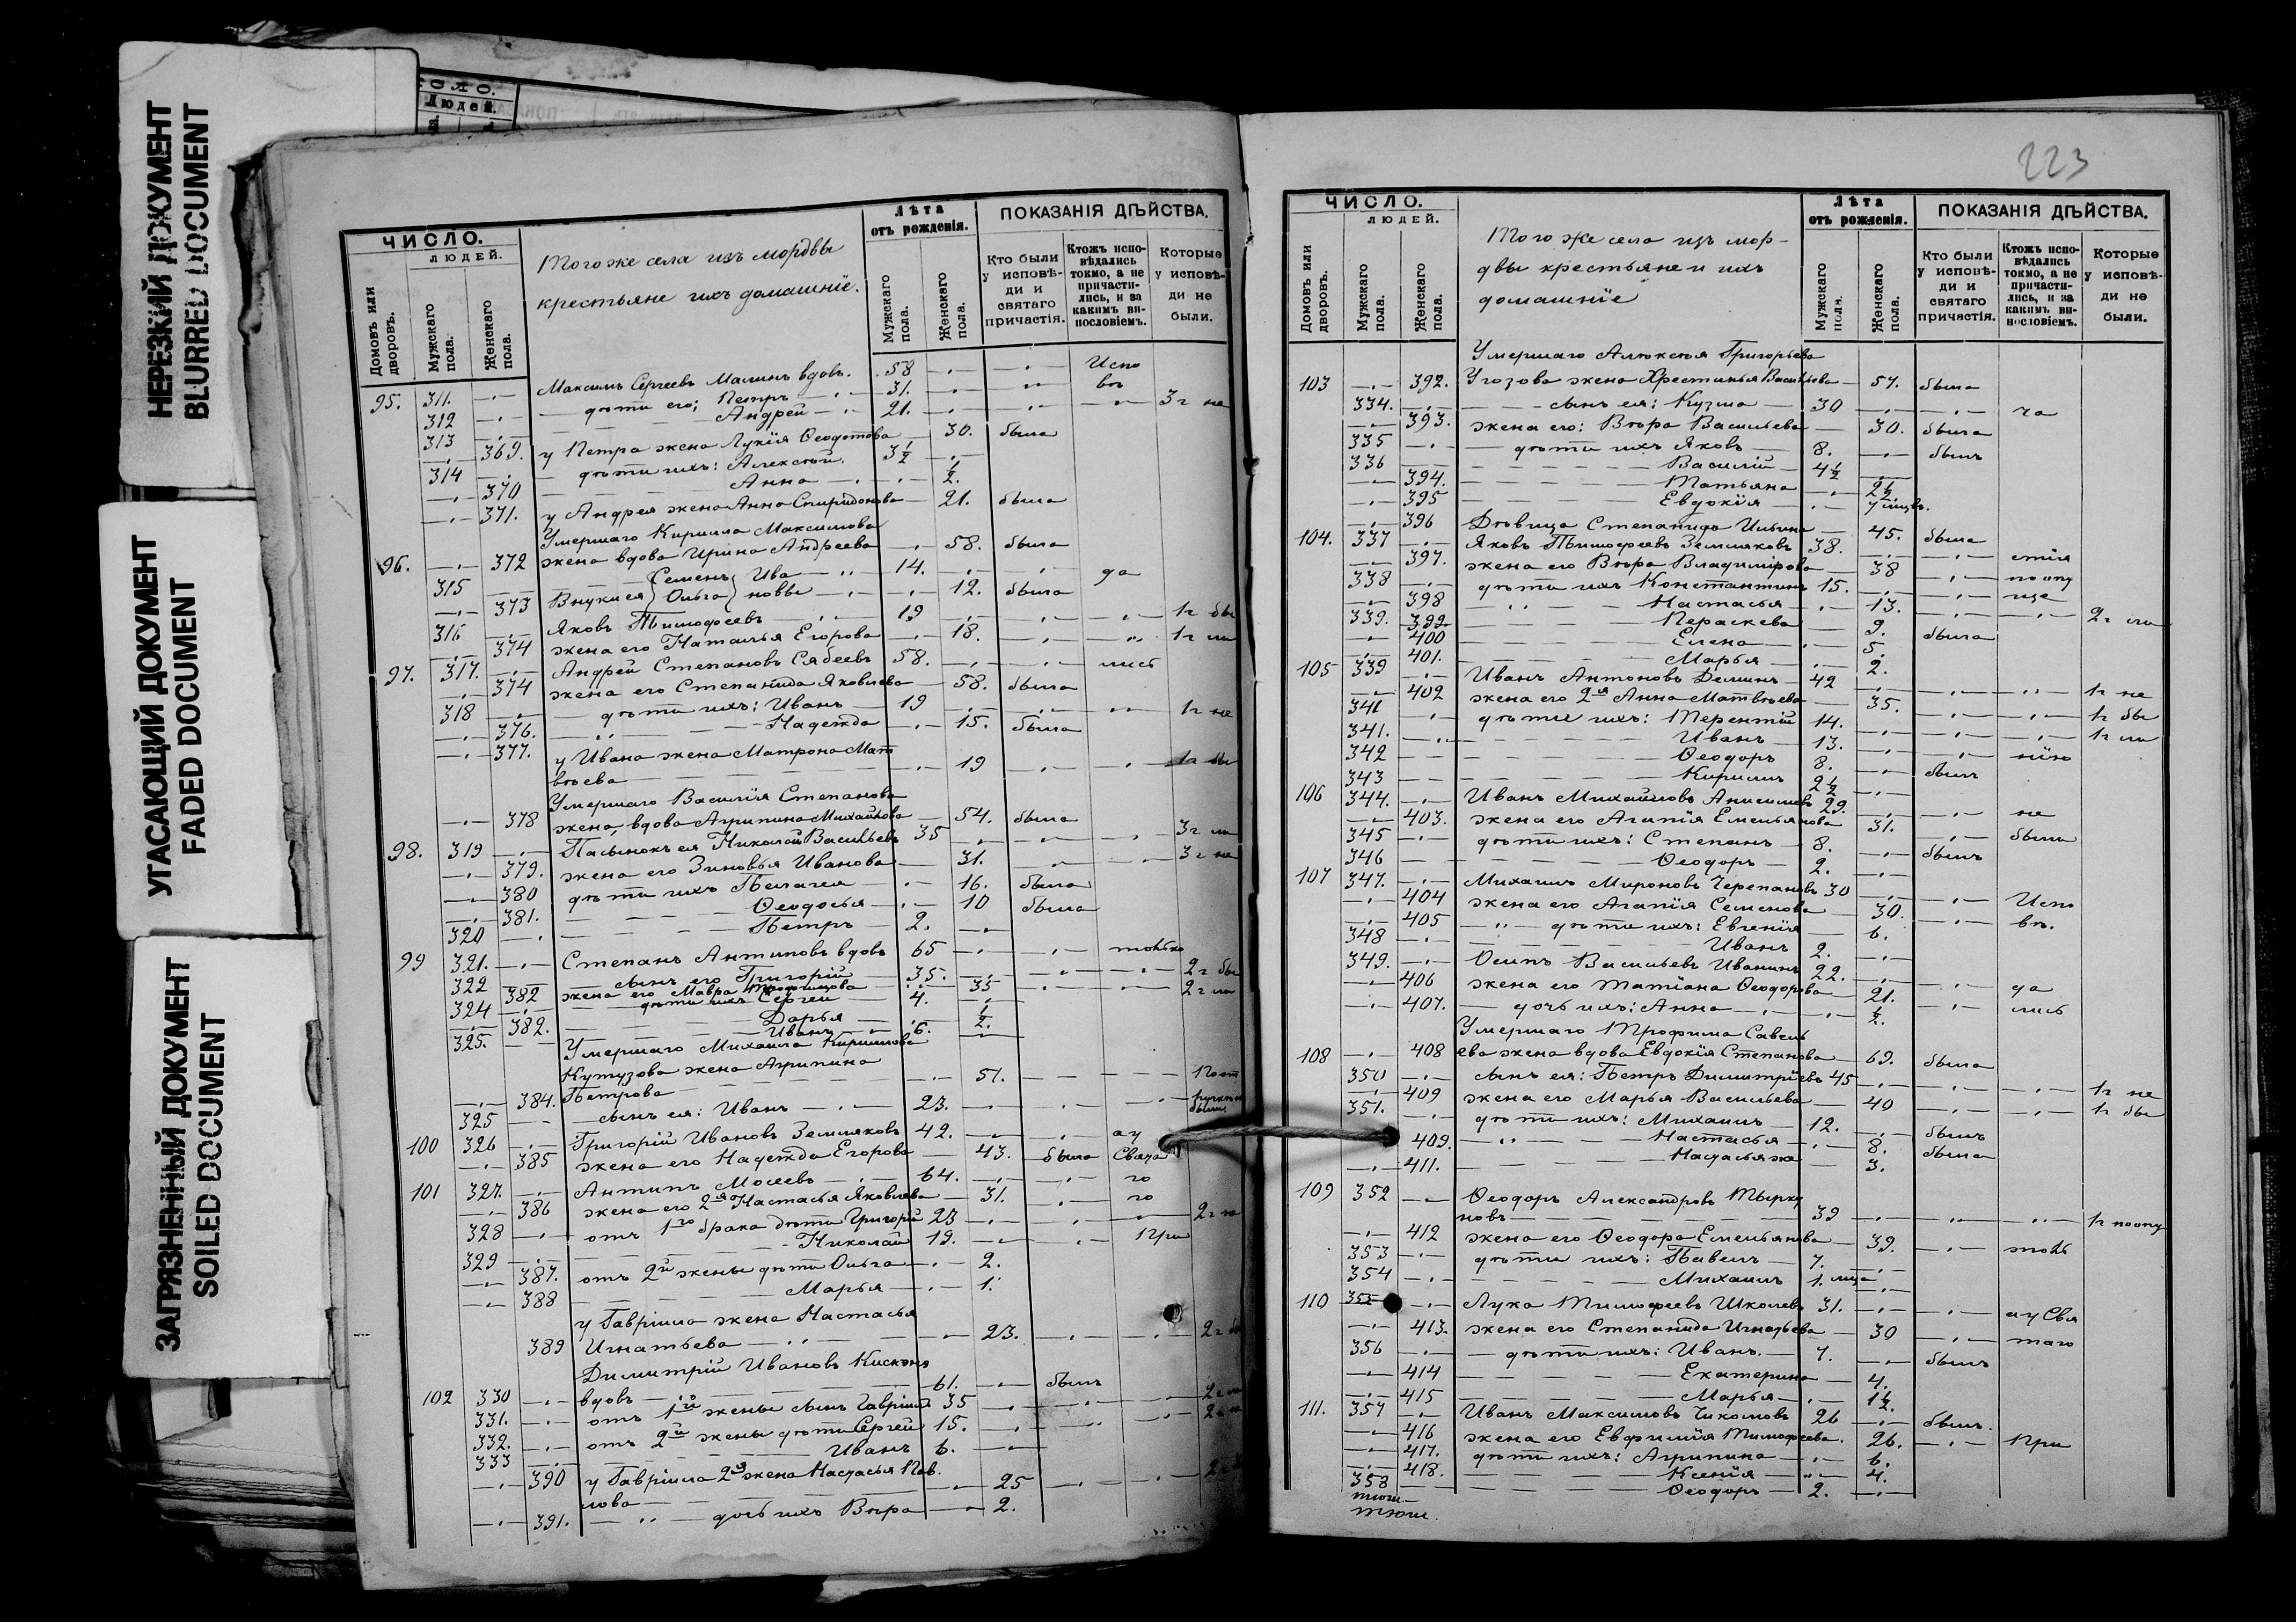 НЕРЕЗКИЙ ДОКУМЕНТ
BLURRED DOCUMENT
УГАСАЮЩИЙ ДОКУМЕНТ
FADED DOCUMENT
ЗАГРЯЗНЕННЫЙ ДОКУМЕНТ
SOILED DOCUMENT
Людей.
ЧИСЛО.
ЛЮДЕЙ.
Домовъ или дворовъ.
Мужскаго пола.
Женскаго пола.
Того же села изъ мордвы
крестьяне ихъ домашніе.
Лѣта
отъ рожденія.
Мужскаго пола.
Женскаго пола.
ПОКАЗАНІЯ ДѢЙСТВА.
Кто были у исповѣди и святаго причастія.
Ктожъ исповѣдались токмо, а не причастились, и за какимъ винословіемъ.
Которые у исповѣди не были.
95. 311. Максимъ Сергеевъ Малинъ вдовъ. 58 Испо
312 дѣти его; Петръ 31. вѣ
313 Андрей 21. 3 г не
369. у Петра жена Лукія Ѳеодотова 30. была
314 дѣти ихъ: Алексѣй. 3½
370 Анна ½.
371. у Андрея жена Анна Спиридонова 21. была
Умершаго Кирила Максимова
96. 372 жена вдова Ирина Андреева 58. была
315 Внуки ея Семенъ Ива 14. да
373 Ольга новы 12. была
316 Яковъ Тимофеевъ 19 1 г бы
374 жена его Наталья Егорова 18. 1 г ли
97. 317. Андрей Степановъ Сябеевъ 58. лись
374 жена его Степанида Яковлева 58. была
318 дѣти ихъ: Иванъ 19 1 г не
376. Надежда 15. была
377. у Ивана жена Матрона Мат
вѣева 19 1 г бы
Умершаго Василія Степанова
378 жена, вдова Агрипина Михайлова 54. была
98. 319 Пасынокъ ея Николай Васильевъ 35 3 г ли
379. жена его Зиновья Иванова 31. 3 г не
380 дѣти ихъ Пелагея 16. была
381. Ѳеодосья 10 была
320 Петръ 2.
99 321. Степанъ Антиповъ вдовъ 65 только
322 сынъ его Григорій 35. 2 г бы
382 жена его Мавра Трофимова 35 2 г ли
324 дѣти ихъ Сергей 4.
382. Дарья ½.
325. Иванъ 6.
Умершаго Михаила Кирилова
Кутузова жена Агрипина
384. Петрова 51.
325 сынъ ея: Иванъ 23. были.
100 326 Григорій Ивановъ Земляковъ 42. ау
385 жена его Надежда Егорова 43. была Свята
101 327. Антипъ Мосеевъ 64. го
386 жена его 2я Настасья Яковлева 31. го
328 отъ 1го брака дѣти Григорій 23 2 г
329 Николай 19. При
387. отъ 2й жены дѣти Ольга 2.
388 Марья 1.
у Гавріила жена Настасья
389 Игнатьева 23. 2 г
Димитрій Ивановъ
102 330 вдовъ 61. былъ
331. отъ 1й жены сынъ Гавріилъ 35 2 г
332. отъ 2й жены дѣти Сергей 15. 2 г
333 Иванъ 6.
390 у Гавріила 2я жена Настасья Пав.
лова 25
391. дочь ихъ Вѣра 2.
223
ЧИСЛО.
ЛЮДЕЙ.
Домовъ или дворовъ.
Мужскаго пола.
Женскаго пола.
Того же села изъ мор-
двы крестьяне и ихъ
домашніе
Лѣта
отъ рожденія.
Мужскаго пола.
Женскаго пола.
ПОКАЗАНІЯ ДѢЙСТВА.
Кто были у исповѣди и святаго причастія.
Ктожъ исповѣдались токмо, а не причастились, и за какимъ винословіемъ.
Которые у исповѣди не были.
Умершаго Алексѣя Григорьева
103 392. Угозова жена Хрестинья Васильева 57. была
334. сынъ ея: Кузма 30 ча
393. жена его: Вѣра Васильева 30. была
335 дѣти ихъ Яковъ 8. былъ
336 Василій 4½
394. Татьяна 2½
395 Евдокія
396 Дѣвица Степанида Ильина 45. была
104. 337 Яковъ Тимофеевъ Земляковъ 38. стія
397. жена его Вѣра Владимірова 38 по опу
338 дѣти ихъ Константинъ 15. ще
398 Настасья 13. 2 г ли
339. 399 Пераскева 9. была
400 Елена 5.
401. Марья 2.
105 339 Иванъ Антоновъ Деминъ 42 1 г не
402 жена его 2я Анна Матвѣева 35. 1 г бы
341 дѣти ихъ: Терентій 14. 1 г ли
341. Иванъ 13. нію
342 Ѳеодоръ 8. былъ
343 Кирилъ 2½
106 344. Иванъ Михайловъ Анисимовъ 29. не
403. жена его Агапія Емельянова 31. были
345 дѣти ихъ: Степанъ 8. былъ
346 Ѳеодоръ 2.
107 347. Михаилъ Мироновъ Черепановъ 30 Испо
404 жена его Агапія Семенова 30. вѣ.
405 дѣти ихъ: Евгенія 6.
348 Иванъ 2.
349. Осипъ Васильевъ Иванинъ 22. да
406 жена его Татіана Ѳеодорова 21. лись
407. дочь ихъ: Анна ½.
Умершаго Трофима Савель
108 408 ева жена вдова Евдокія Степанова 69. была
350 сынъ ея: Петръ Димитріевъ 45 1 г не
409 жена его Марья Васильева 40 1 г бы
351. дѣти ихъ: Михаилъ 12. былъ
409. Настасья 8. была
411. Настасья же 3.
109 352 Ѳеодоръ Александровъ Тырку
новъ 39 1 г по опу
412 жена его Ѳеодора Емельянова 39. толь
353 дѣти ихъ: Павелъ 7.
354 Михаилъ 1.
110 355 Лука Тимофеевъ Школевъ 31. ау Свя
413. жена его Степанида Игнатьева 30 таго
356 дѣти ихъ: Иванъ. 7. былъ
414 Екатерина 4.
415 Марья 1½.
111. 357 Иванъ Максимовъ Чикомовъ 26 былъ.
416 жена его Евфимія Тимофеева. 26. При
417. дѣти ихъ: Агрипина 6.
418. Ксенія 4.
358 Ѳеодоръ 2.